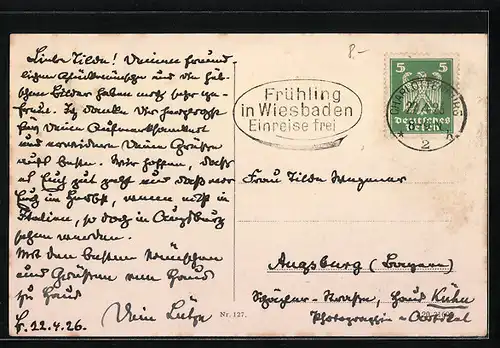 Liebe Tilde! Deinen freund-
lichen Glückwünsche und die hüb-
schen Bilder haben mich sehr ge-
freut. Ich danke Dir herzlichst
für Deine Aufmerksamkeit
und erwidere Deine Grüsse
aufs beste. Wir hoffen, dass
es Euch gut geht und dass wir
Euch im Herbst, wenn nicht in
Italien, so doch in Augsburg
sehen werden.
Mit den besten Wünschen
und Grüssen von Haus
zu Haus
Dein
22.4.26.
8.-
Frühling
in Wiesbaden
Einreise frei
5 5
Deutsches
Reich
2
Frau Tilde Wegmar
Augsburg (Bayern)
Schäzler-Strasse, Haus Kühn
Photographie-
Nr. 127.